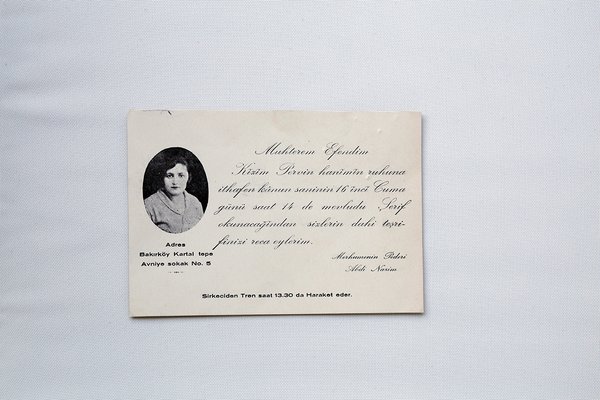 Muhterem Efendim
Kızım Pervin hanimin ruhuna
ithafen kânun saninin 16 inci Cuma
günü saat 14 de mevludu Şerif
okunacağından sizlerin dahi teşri-
finizi reca eylerim.
Merhumenin Pederi
Abdi Nasim
Adres
Bakırköy Kartal tepe
Avniye sokak No. 5
Sirkeciden Tren saat 13.30 da Haraket eder.